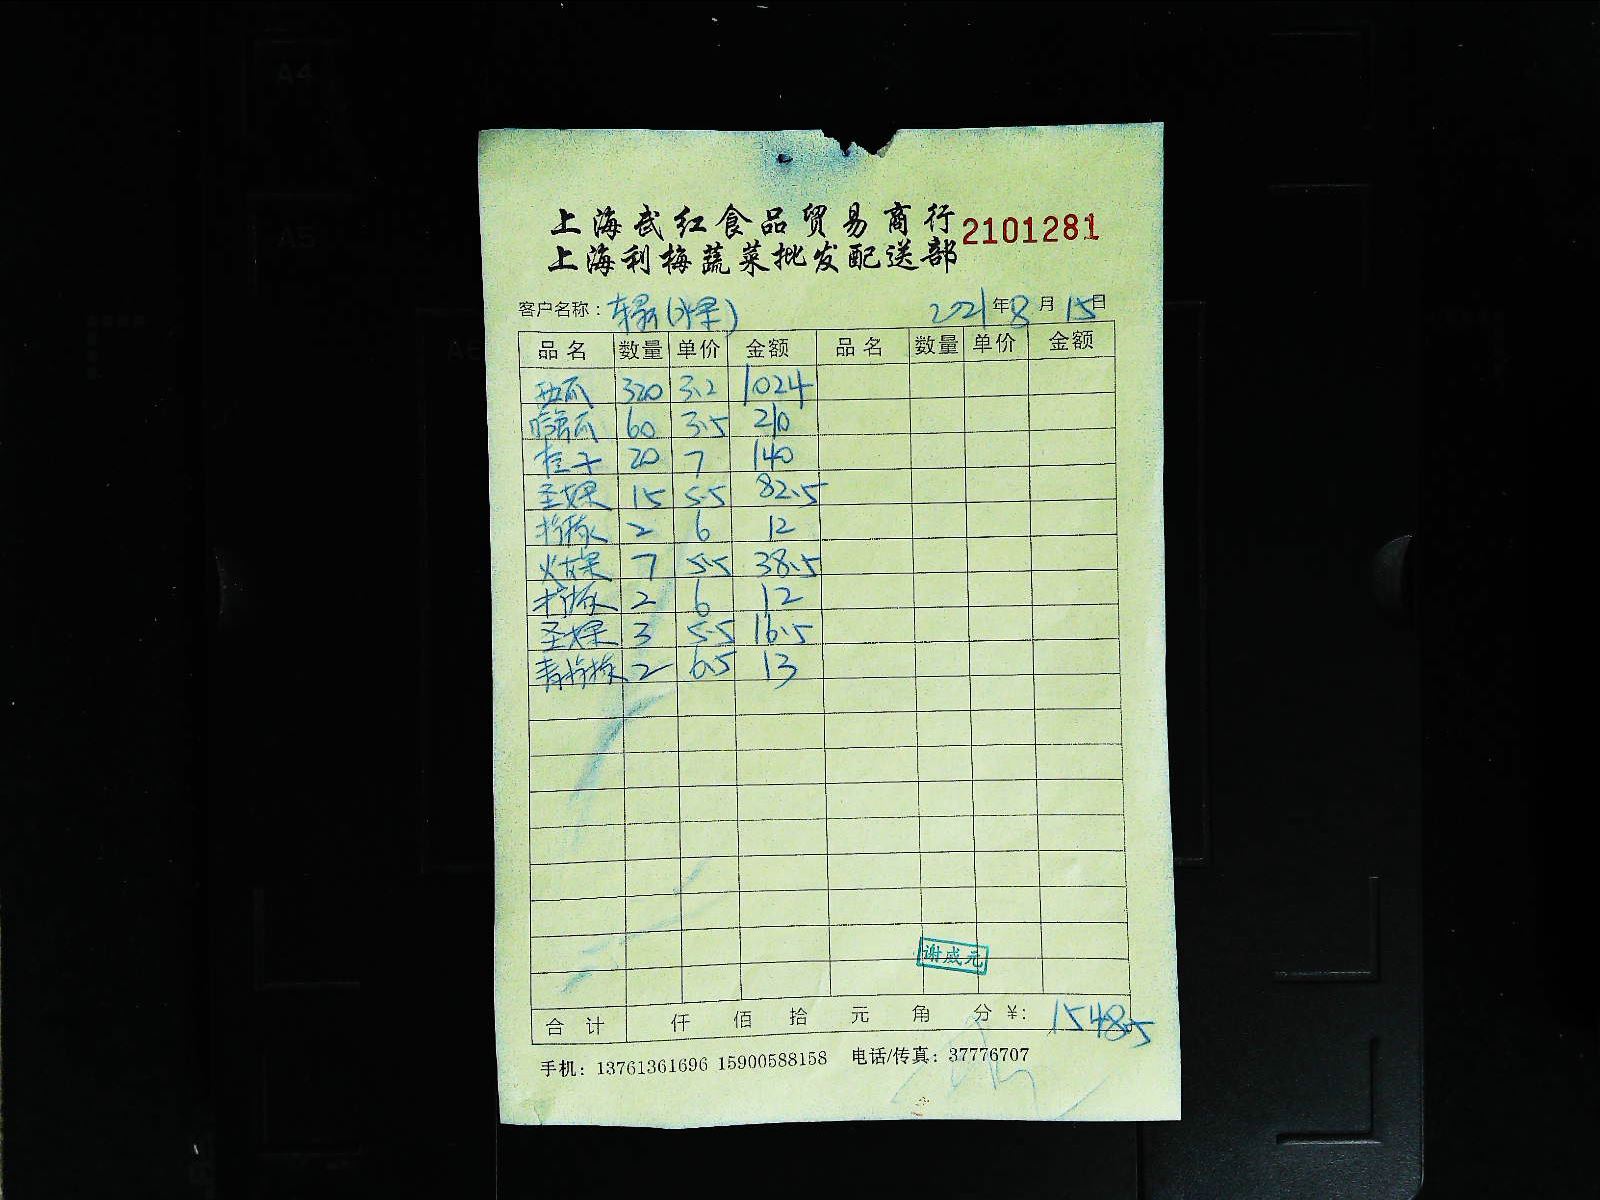 上海武红食品贸易商行 2101281
上海利梅蔬菜批发配送部
客户名称： (水果) 2021年8月15日
品名 数量 单价 金额 品名 数量 单价 金额
西瓜 320 3.2 1024
哈密瓜 60 3.5 210
桔子 20 7 140
圣女果 15 5.5 82.5
柠檬 2 6 12
火龙果 7 5.5 38.5
柠檬 2 6 12
圣女果 3 5.5 16.5
青柠檬 2 6.5 13
谢威元
合计 仟 佰 拾 元 角 分 ¥: 1548.5
手机：13761361696 15900588158 电话/传真：37776707